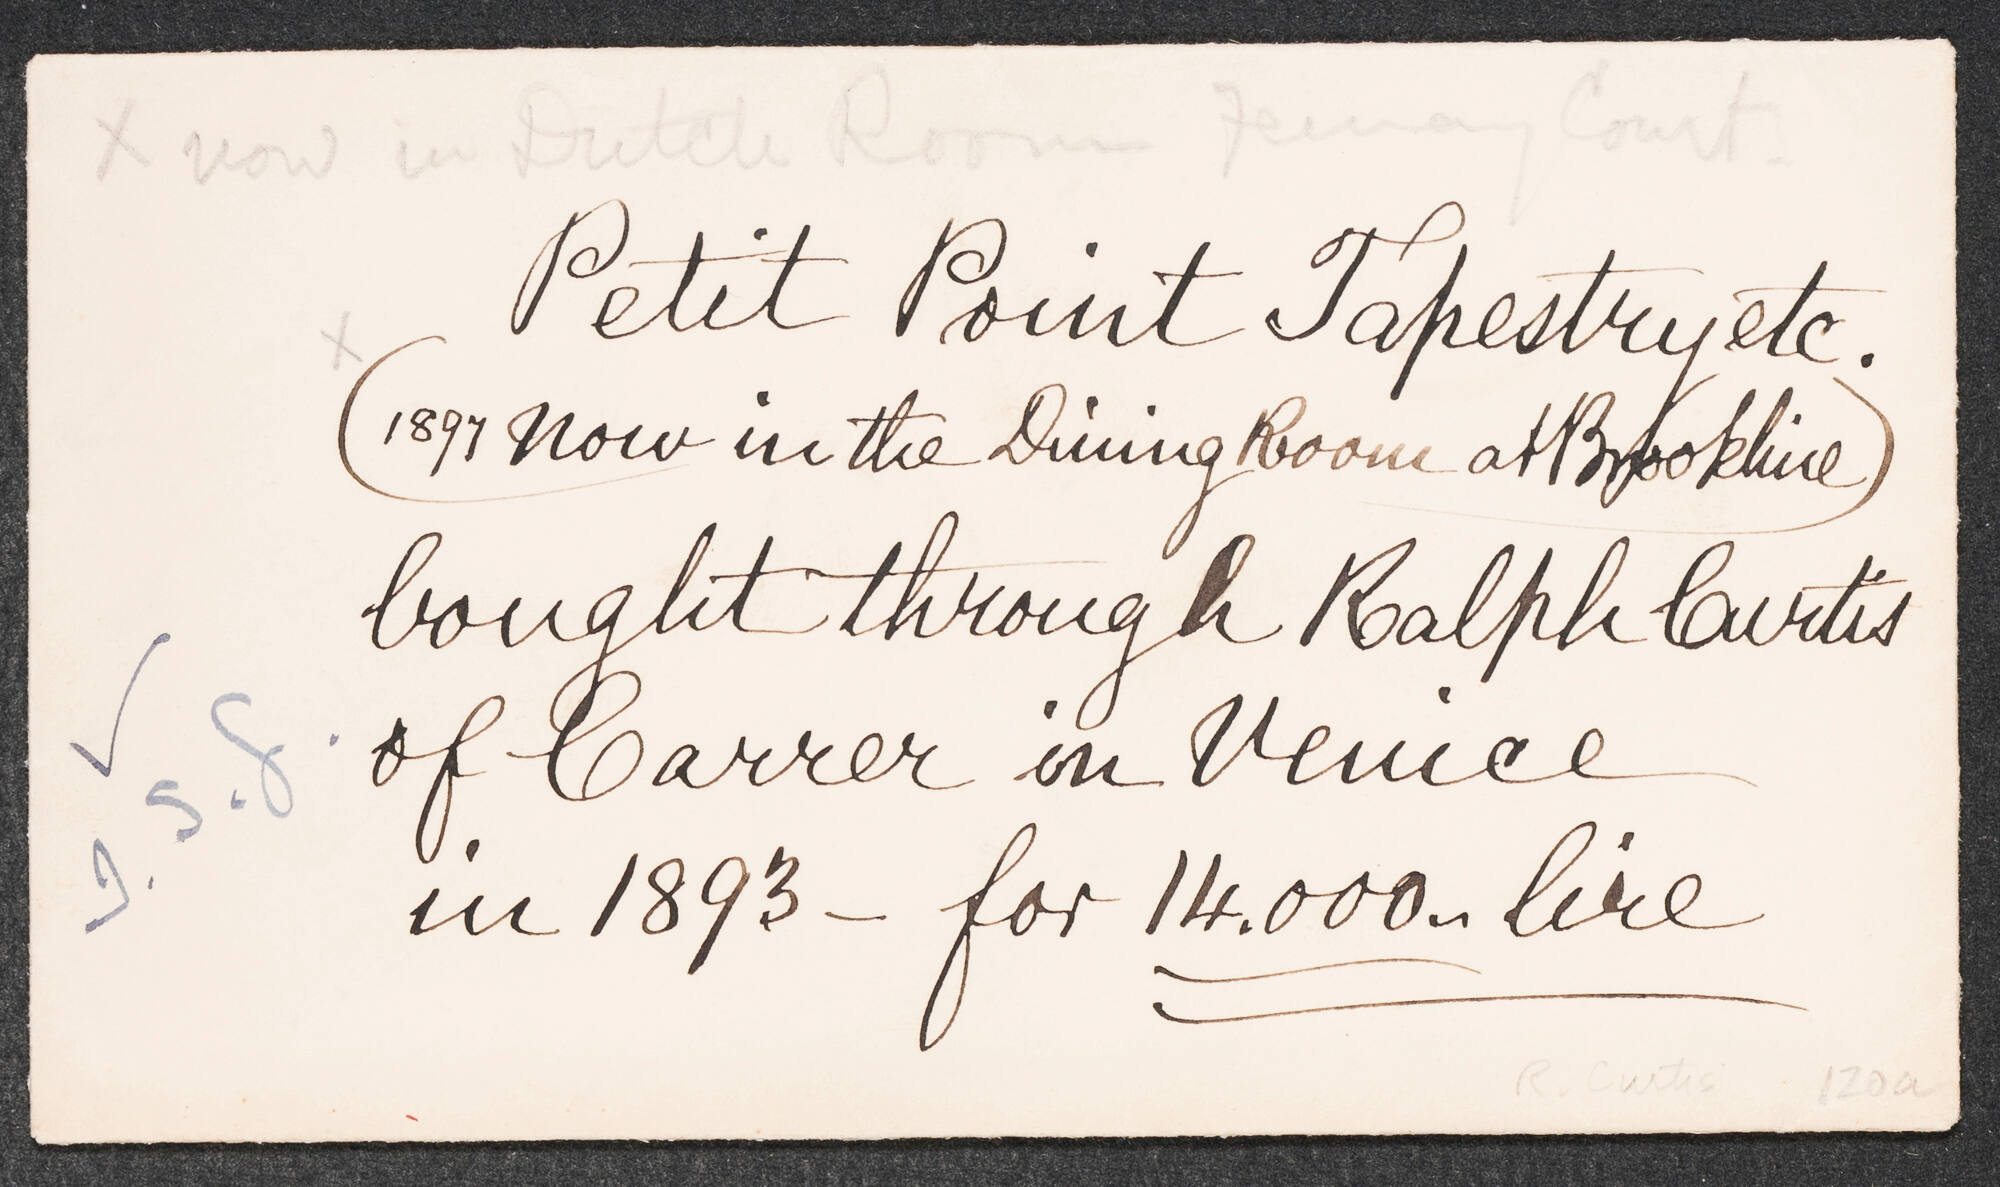 x now in Dutch Room Fenway Court.
Petit Point Tapestry etc.
x
(1897 now in the Dining Room at Brookline)
bought through Ralph Curtis
of Carrer in Venice
in 1893 - for 14.000.. lire
I.S.G.
R. Curtis 120a